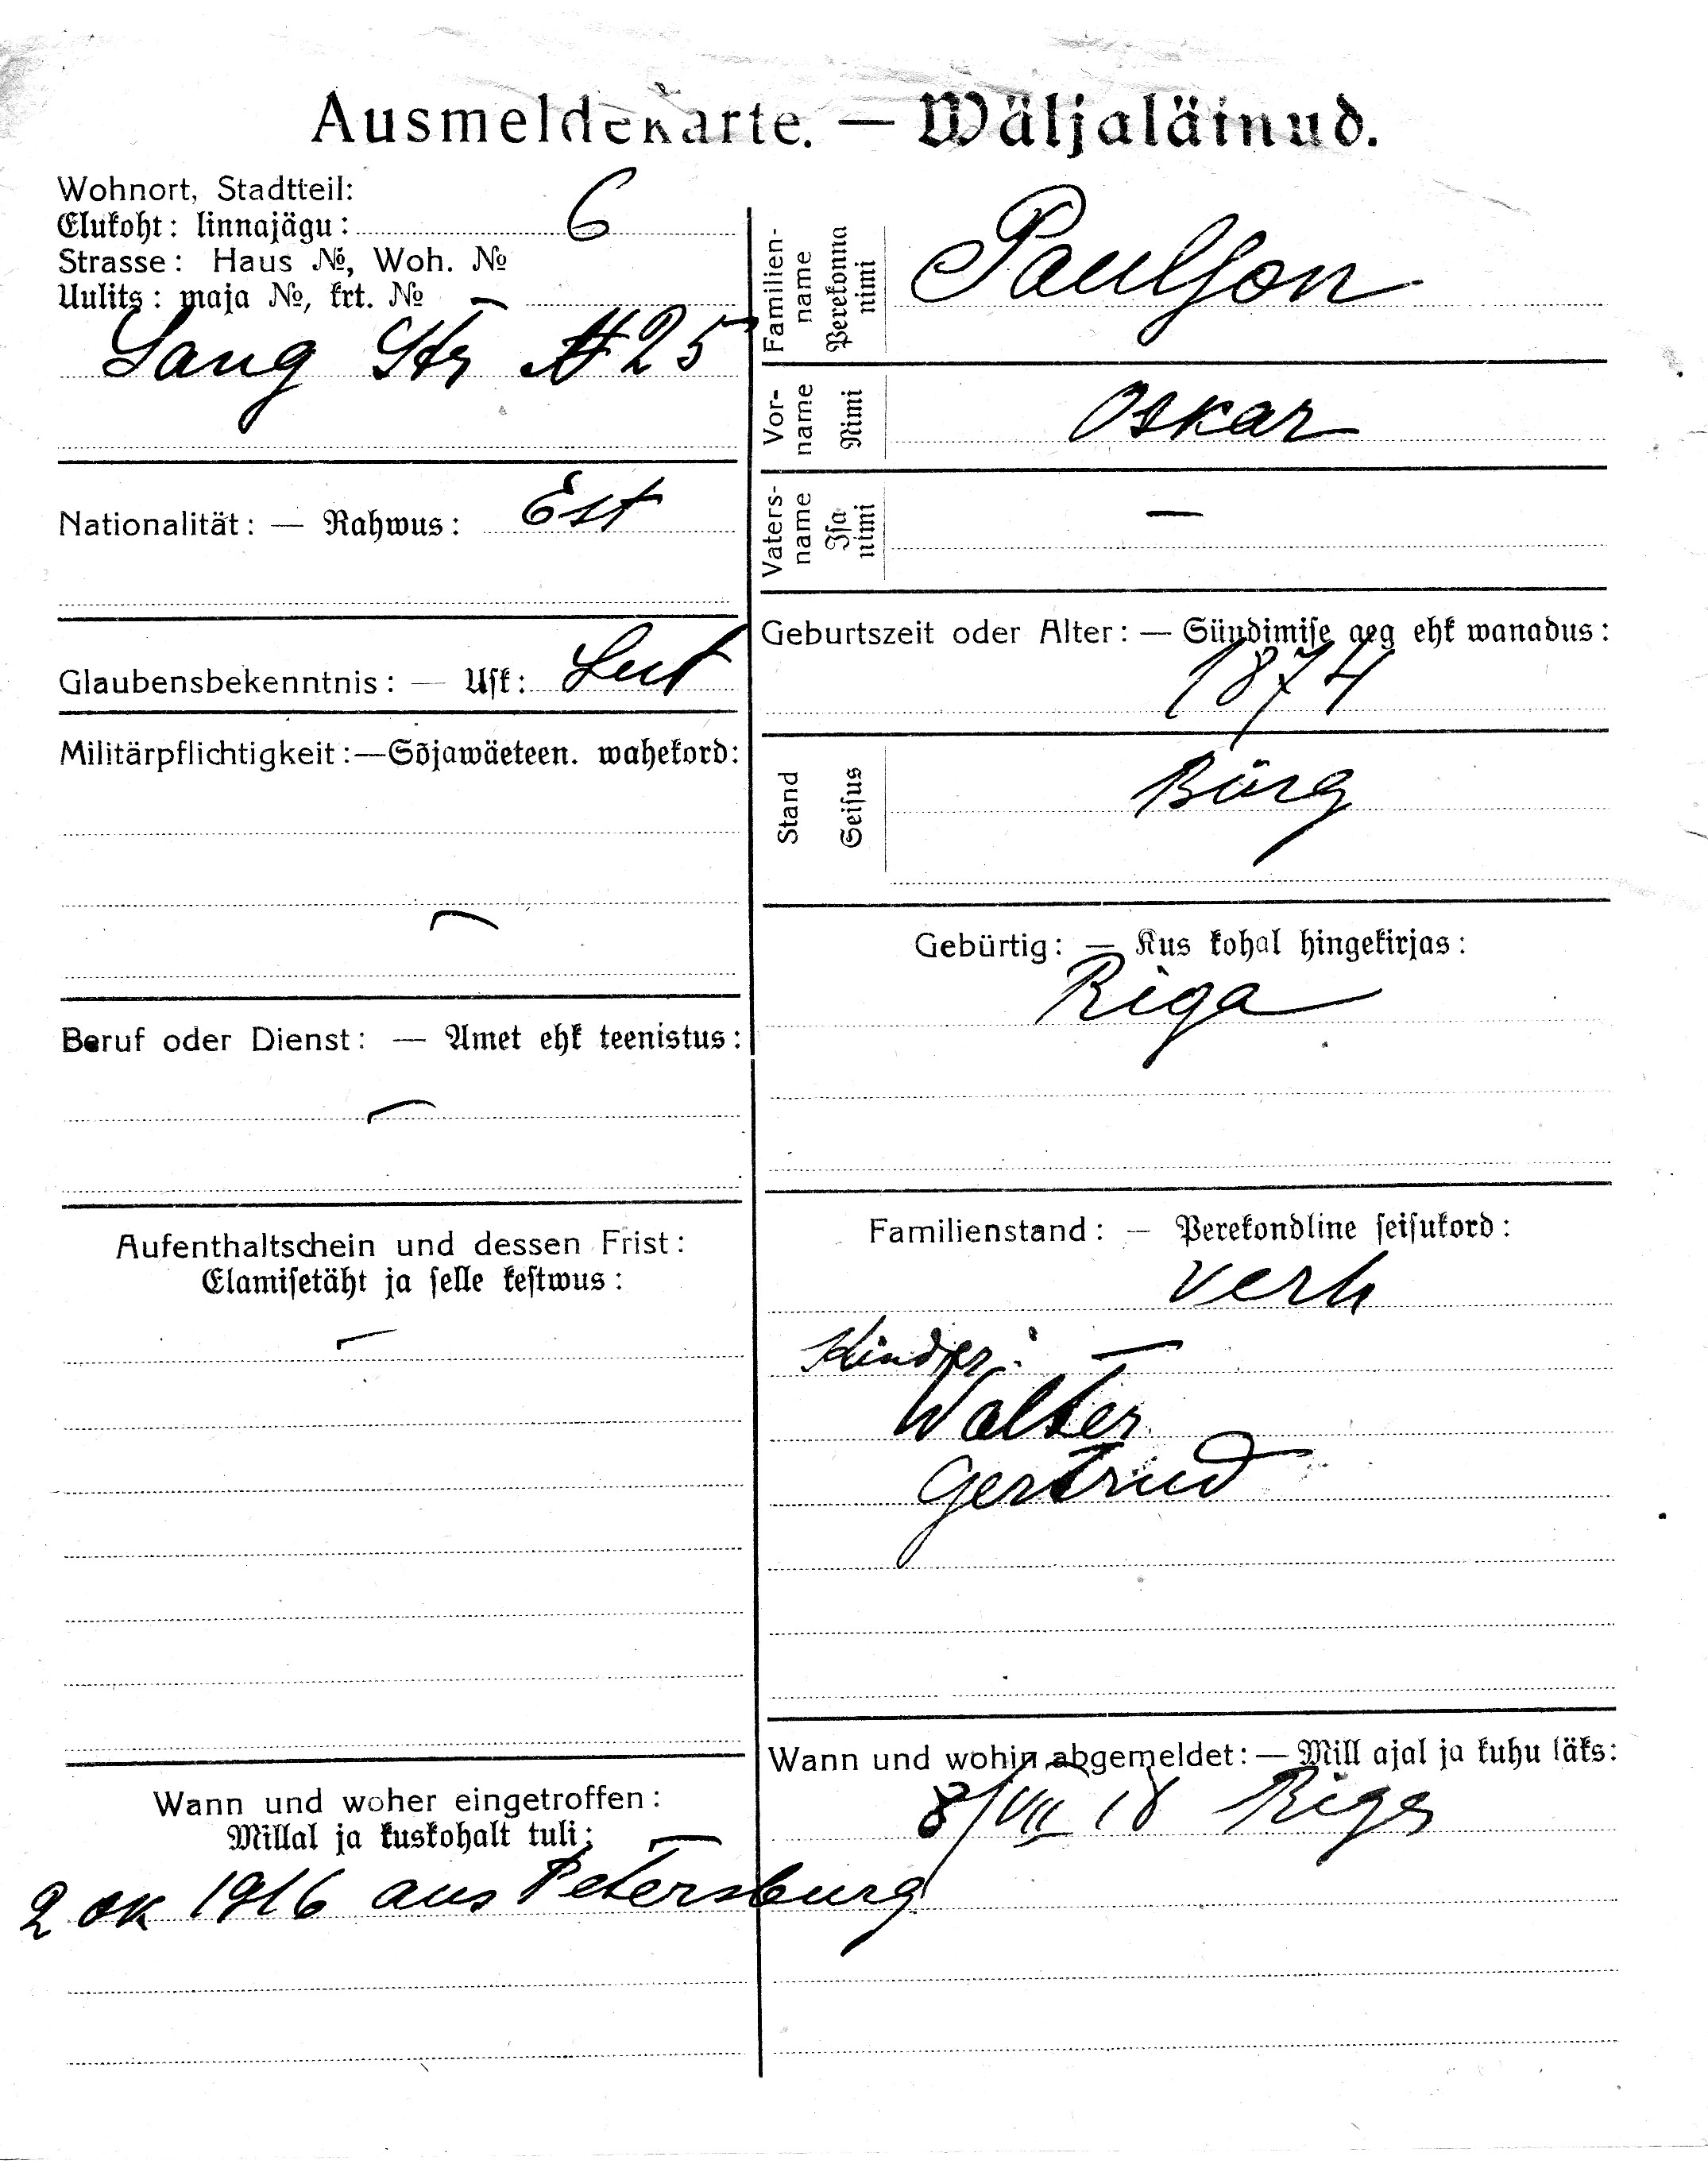 Ausmeldekarte. — Wäljaläinud.
Wohnort, Stadtteil:
Elukoht: linnajägu: 6
Strasse: Haus №, Woh. №
Uulits: maja №, krt. №
Lang Str № 25
Nationalität: — Rahwus: Est
Glaubensbekenntnis: — Usk: Lut
Militärpflichtigkeit:—Sõjawäeteen. wahekord:
—
Beruf oder Dienst: — Amet ehk teenistus:
—
Aufenthaltschein und dessen Frist:
Elamisetäht ja selle kestwus:
—
Wann und woher eingetroffen:
Millal ja kuskohalt tuli:
2 ok 1916 aus Petersburg
Familien-
name
Perekonna
nimi
Paulson
Vor-
name
Nimi
Oskar
Vaters-
name
Isa
nimi
—
Geburtszeit oder Alter: — Sündimise aeg ehk wanadus:
1874
Stand
Seisus
Bürg
Gebürtig: — Kus kohal hingekirjas:
Riga
Familienstand: — Perekondline seisukord:
verh
Kinder:
Walter
Gertrud
Wann und wohin abgemeldet: — Mill ajal ja kuhu läks:
8/VII 18 Riga